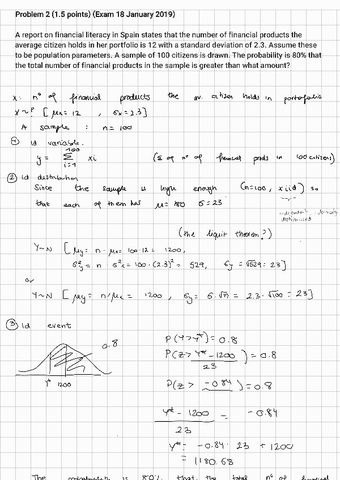 Problem 2 (1.5 points) (Exam 18 January 2019)
A report on financial literacy in Spain states that the number of financial products the
average citizen holds in her portfolio is 12 with a standard deviation of 2.3. Assume these
to be population parameters. A sample of 100 citizens is drawn. The probability is 80% that
the total number of financial products in the sample is greater than what amount?
X: nº of financial products the av. citizen holds in portofolio
X~? [ μx = 12 , σx = 2.3 ]
A sample : n = 100
① Id variable.
y = Σ xi (Σ of nº of financial prods in 100 citizens)
100
i=1
② Id distribution
Since the sample is high enough (n=100, x iid) so
that each of them has σ = 23
distributed
(the liquit theorem?)
Y~N [ μy = n · μx = 100·12 = 1200,
σ²y = n σ²x = 100·(2.3)² = 529, σy = √529 = 23 ]
or
Y~N [ μy = n/μx = 1200 , σy = σ·√n = 2.3·√100 = 23 ]
③ Id event
0.8
Y* 1200
P(Y>Y*) = 0.8
P(Z > Y* - 1200 / 23) = 0.8
P(Z > -0.84) = 0.8
Y* - 1200 / 23 = -0.84
Y* = -0.84 · 23 + 1200
= 1180.68
The is 80% that the total nº of financial